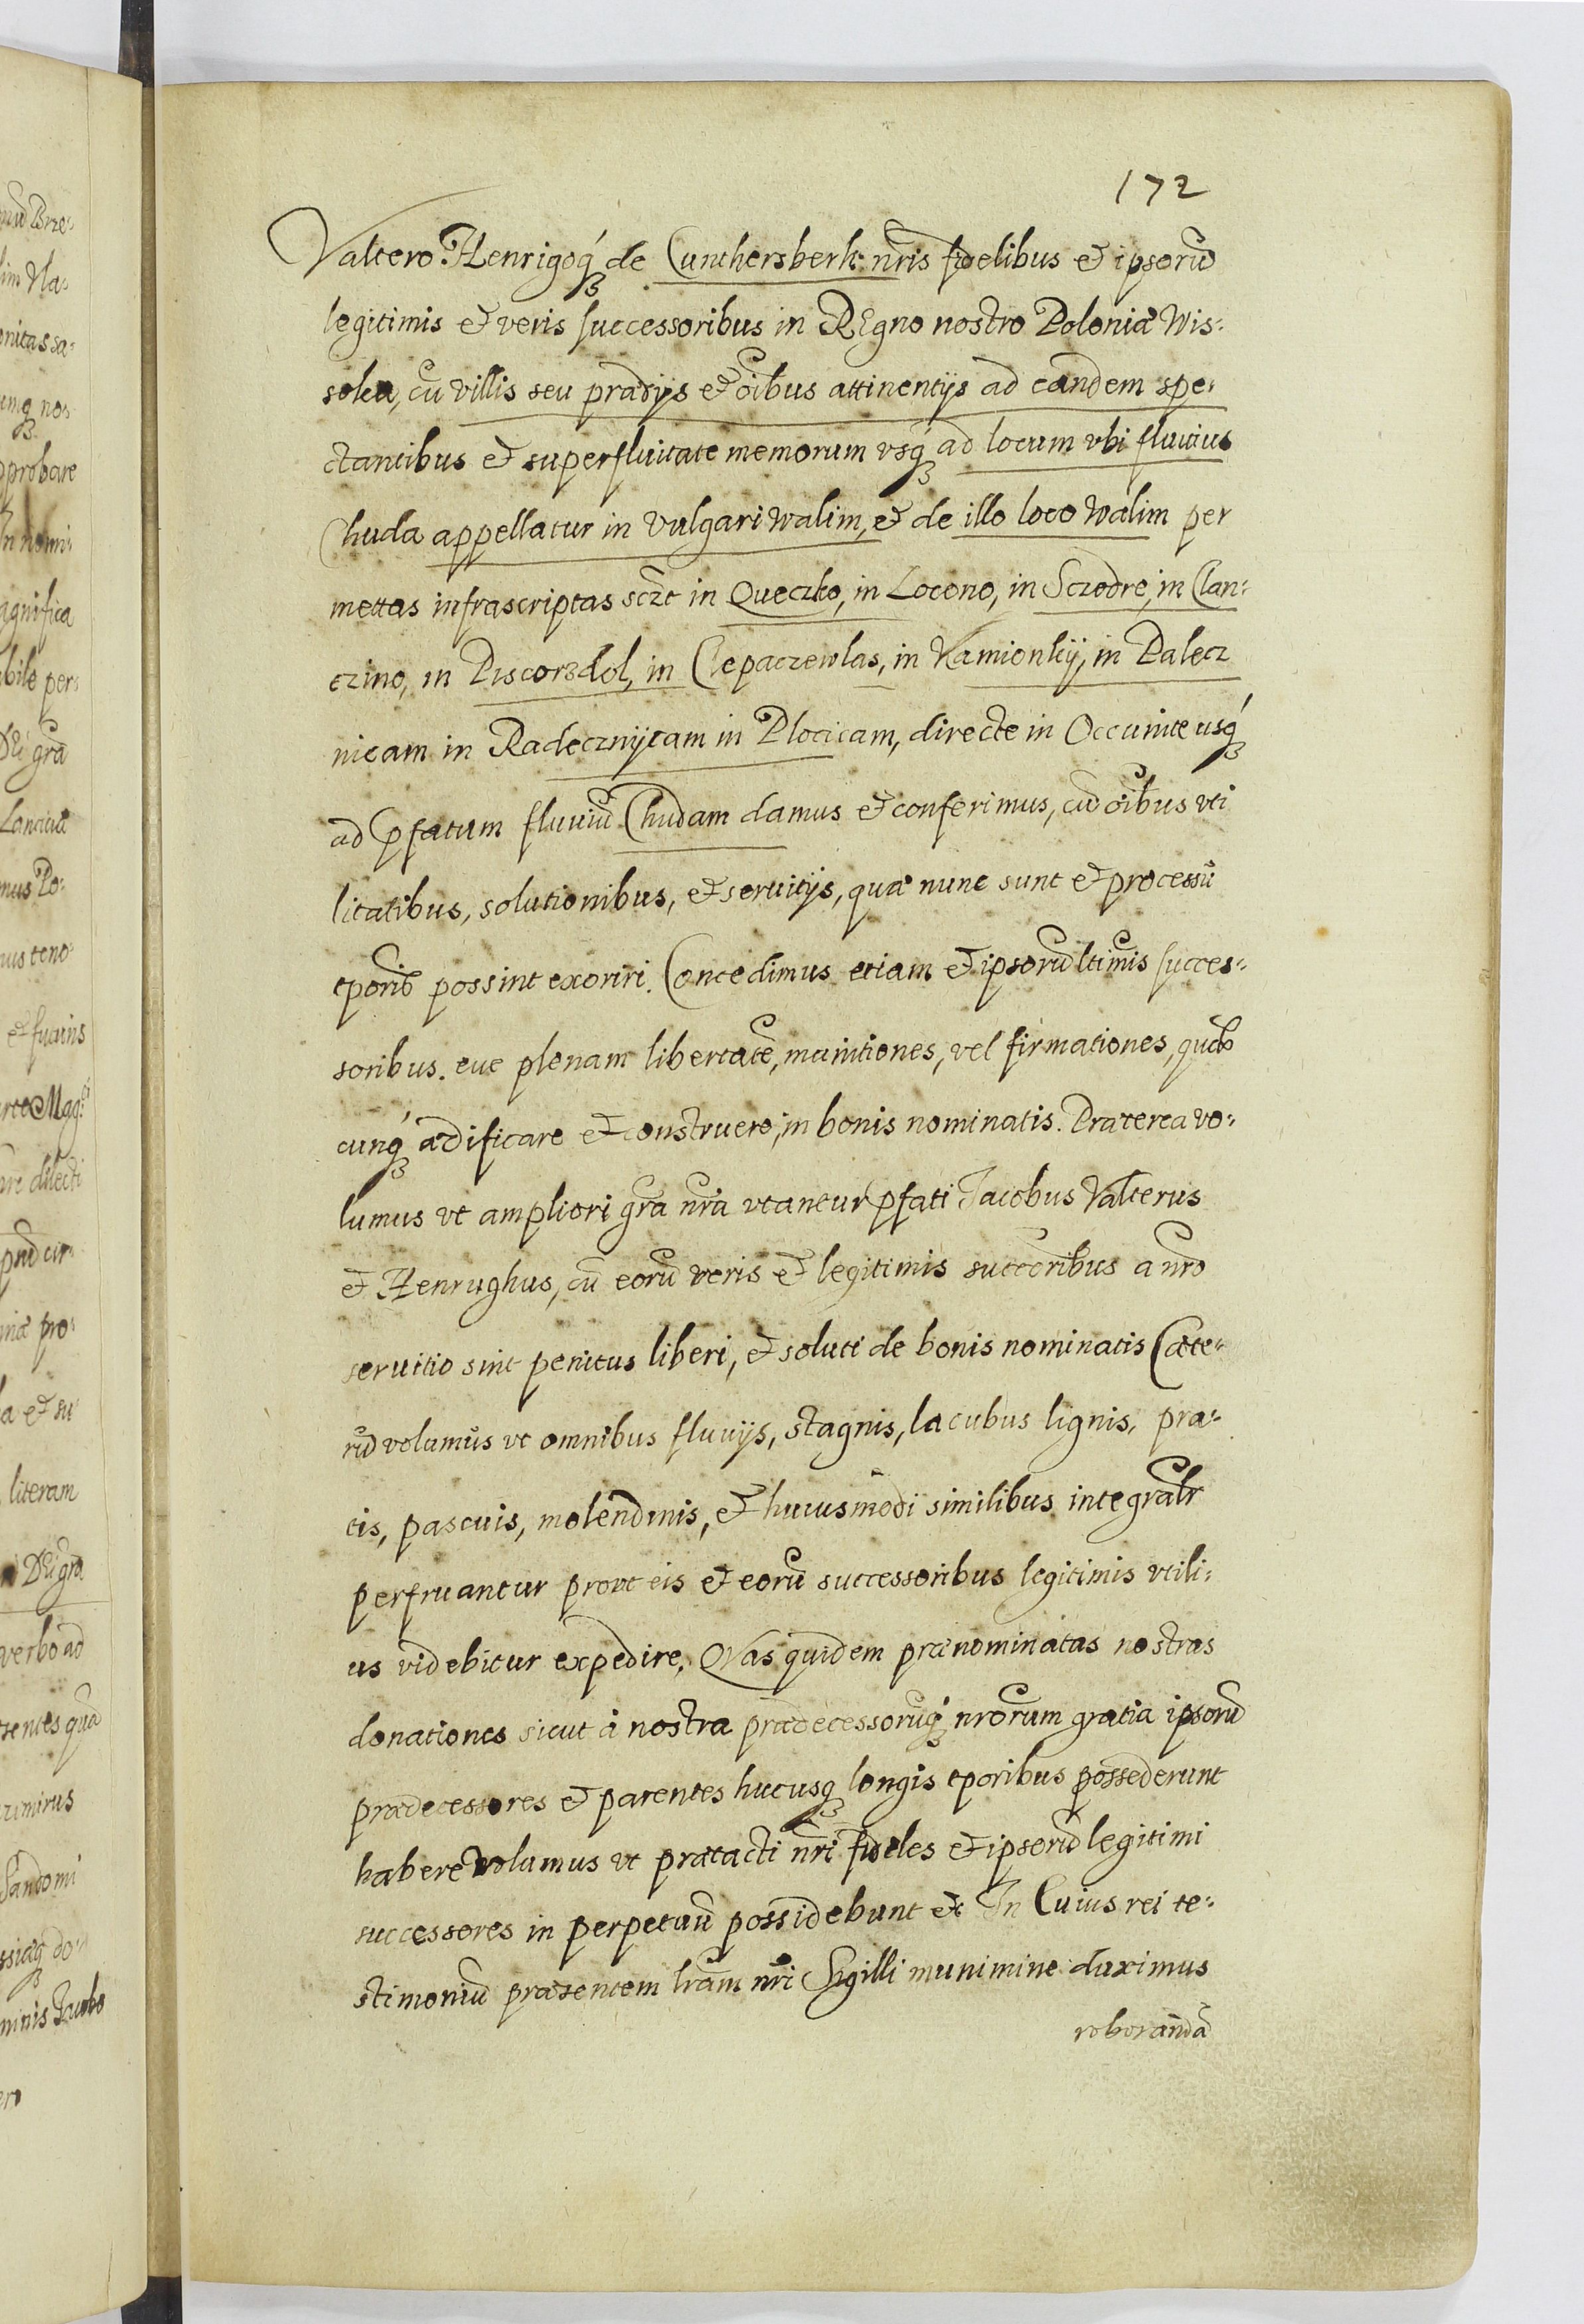 172
Valtero Henrigoq́ʒ de Cunthersberk nr̃is fidelibus et ipsorũ
legitimis et veris successoribus in REgno nostro Poloniæ Wis-
soka, cũ villis seu prædijs et oĩbus attinentijs ad eandem spe-
ctantibus et superfluitate memorum vsq́ʒ ad locum vbi fluuius
Chuda appellatur in vulgari walim, et de illo loco walim per
mettas infrascriptas scz̃t in Queczko, in Locono, in Sczodre, in Clan-
czino, in Discorzdol, in Clepaczewlas, in Kamionkij, in Palecz
nicam in Radecznijcam in Plocicam, directe in Occunite usq́ʒ
ad p̱fatum fluuiũ Chudam damus et conferimus, cũ oĩbus vti
litatibus, solutionibus, et seruitijs, quæ nunc sunt et processũ
tporis̃ possint exoriri. Concedimus etiam et ipsorũ ltĩmis succes-
soribus. eue plenam libertatẽ, munitiones, vel firmationes, quas
cunq́ʒ ædificare et construere, in bonis nominatis. Præterea vo-
lumus vt ampliori gr̃a nr̃a vtantur p̱fati Jacobus Valterus
et Henrughus, cũ eorũ veris et legitimis succoribus a nrõ
seruitio sint penitus liberi, et soluti de bonis nominatis Cæte-
rũ volumus vt omnibus fluuijs, stagnis, lacubus lignis, pra-
tis, pascuis, molendinis, et huiusmodi similibus integralr̃
perfruantur prout eis et eorũ successoribus legitimis vtili-
us videbitur expedire, Quas quidem prænominatas nostras
donationes sicut à nostra prædecessorũq́ʒ nrõrum gratia ipsorũ
prædecessores et parentes hucusqʒ longis tporibus possederunt
habere volumus vt prætacti nr̃i fideles et ipsorũ legitimi
successores in perpetuũ possidebunt et In Cuius rei te-
stimoniũ præsentem lr̃am nr̃i Sigilli munimine duximus
roborandã